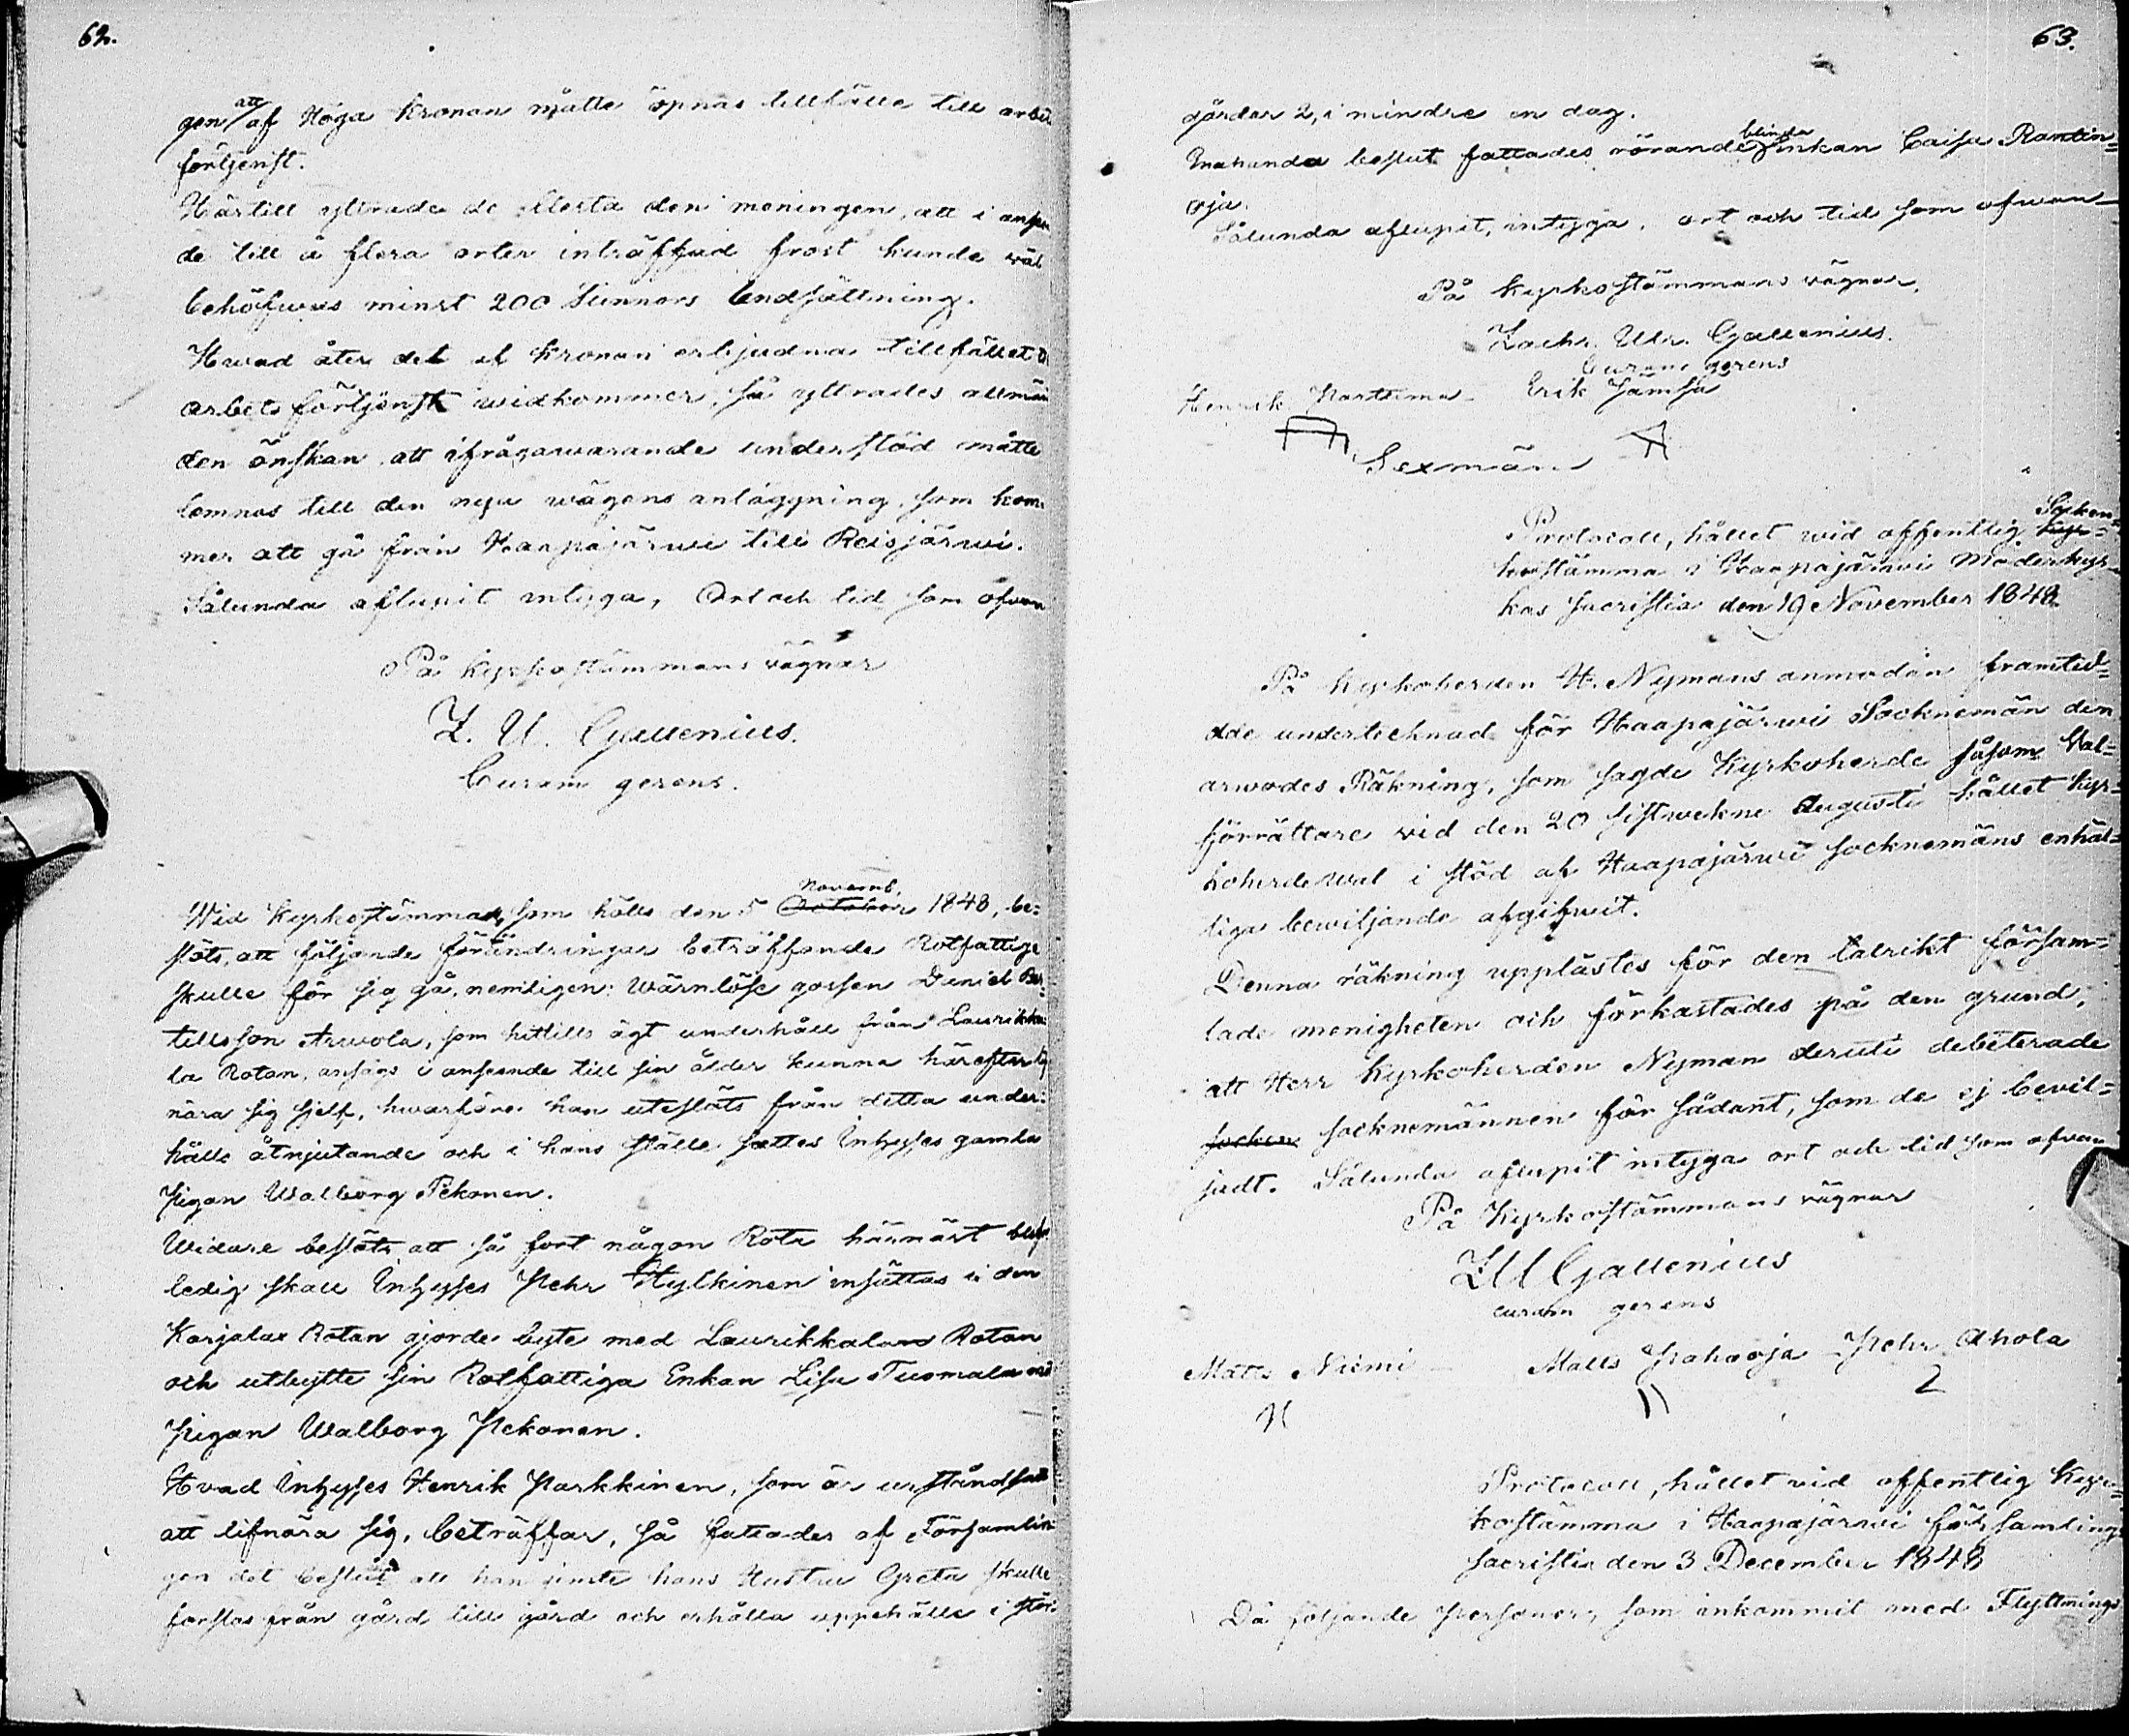 62.
gen att af Höga Kronan måtte öpnas tillfälle till
förtjenst.
Härtill yttrade de flesta den meningen, att i
de till å flera orter inträffad frost kunde wäl
behöfwas minst 200 Tunnors Undsättning.
Hwad åter det af Kronan erbjudna tillfället
arbets förtjenst widkommer, så yttrades allmän
den önskan, att ifrågawarande understöd måtte
lemnas till den nya wägens anläggning, som kom-
mer att gå från Haapajärwi till Reisjärwi.
Sålunda aflupit intyga, Ort och tid som ofwan
På kyrkostämmans vägnar
Z. U. Gallenius.
Curam gerens.
Wid Kyrkostämman, som hölls den 5 Novemb. October 1848, be-
slöts, att följande förändringar beträffande Rotfattige
skulle för sig gå, nemligen: Wärnlöse gossen Daniel
tillsson Arwola, som hittills ägt underhåll från Laurikka
la Rotan, ansågs i anseende till sin ålder kunna härefter
nära sig sjelf, hwarföre han uteslöts från detta under-
hålls åtnjutande och i hans ställe sattes Inhyses gamla
Pigan Walborg Pekonen.
Widare beslöts att så fort någon Rota härnäst
ledig skall Inhyses Pehr Hylkinen insättas i den
Karjalas Rotan gjorde byte med Laurikkalas Rotan
och utbytte sin Rotfattiga Enkan Lisa Tuomala
Pigan Walborg Pekonen.
Hvad Inhyses Henrik Parkkinen, som är ur stånd
att lifnära sig, beträffar, så fattades af Församlin
gen det beslut att han jemte hans Hustru Greta skulle
forslas från gård till gård och erhålla uppehälle i
63.
gårdar 2, i mindre en dag.
Enahanda beslut fattades rörande blinda Enkan Caisa Rantin-
oja.
Sålunda aflupit, intyga, ort och tid som ofwan
På kyrkostämmans vägnar,
Zachr. Ulr. Gallenius.
Curam gerens
Henrik Parttima Erik Jämsä
Sexmän
Protocoll, hållet wid offentlig Kyr- Socken-
kostämma i Haapajärwi Moderkyr-
kas Sacristia den 19 November 1848
På Kyrkoherden H. Nymans anmodan framted-
dde undertecknad för Haapajärwi Socknemän den
arwodes Räkning, som sagde Kyrkoherde såsom Val-
förrättare vid den 20 sistwekne Augusti hållet Kyr-
koherdewal i stöd af Haapajärwi socknemäns enhäl-
liga bewiljande afgifwit.
Denna räkning upplästes för den talrikt försam-
lade menigheten och förkastades på den grund,
att Herr Kyrkoherden Nyman deruti debiterade
socken socknemännen för sådant, som de ej bevil-
jadt. Sålunda aflupit intyga ort och tid som ofvan
På Kyrkostämmans vägnar
ZUGallenius
curam gerens
Matts Niemi Matts Pahaoja Pehr Ahola
Protocoll, hållet vid offentlig Kyr-
kostämma i Haapajärwi församlings
sacristia den 3 December 1848
Då följande personer, som inkommit med Flyttnings